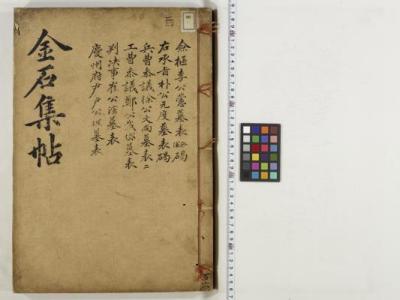 金石集帖
僉樞李公墓表碣
右承旨朴公元度墓表碣
兵曹參議徐公文尚墓表二
工曹參議鄭公墓表
判決事崔公墓表
慶州府尹尹公墓表